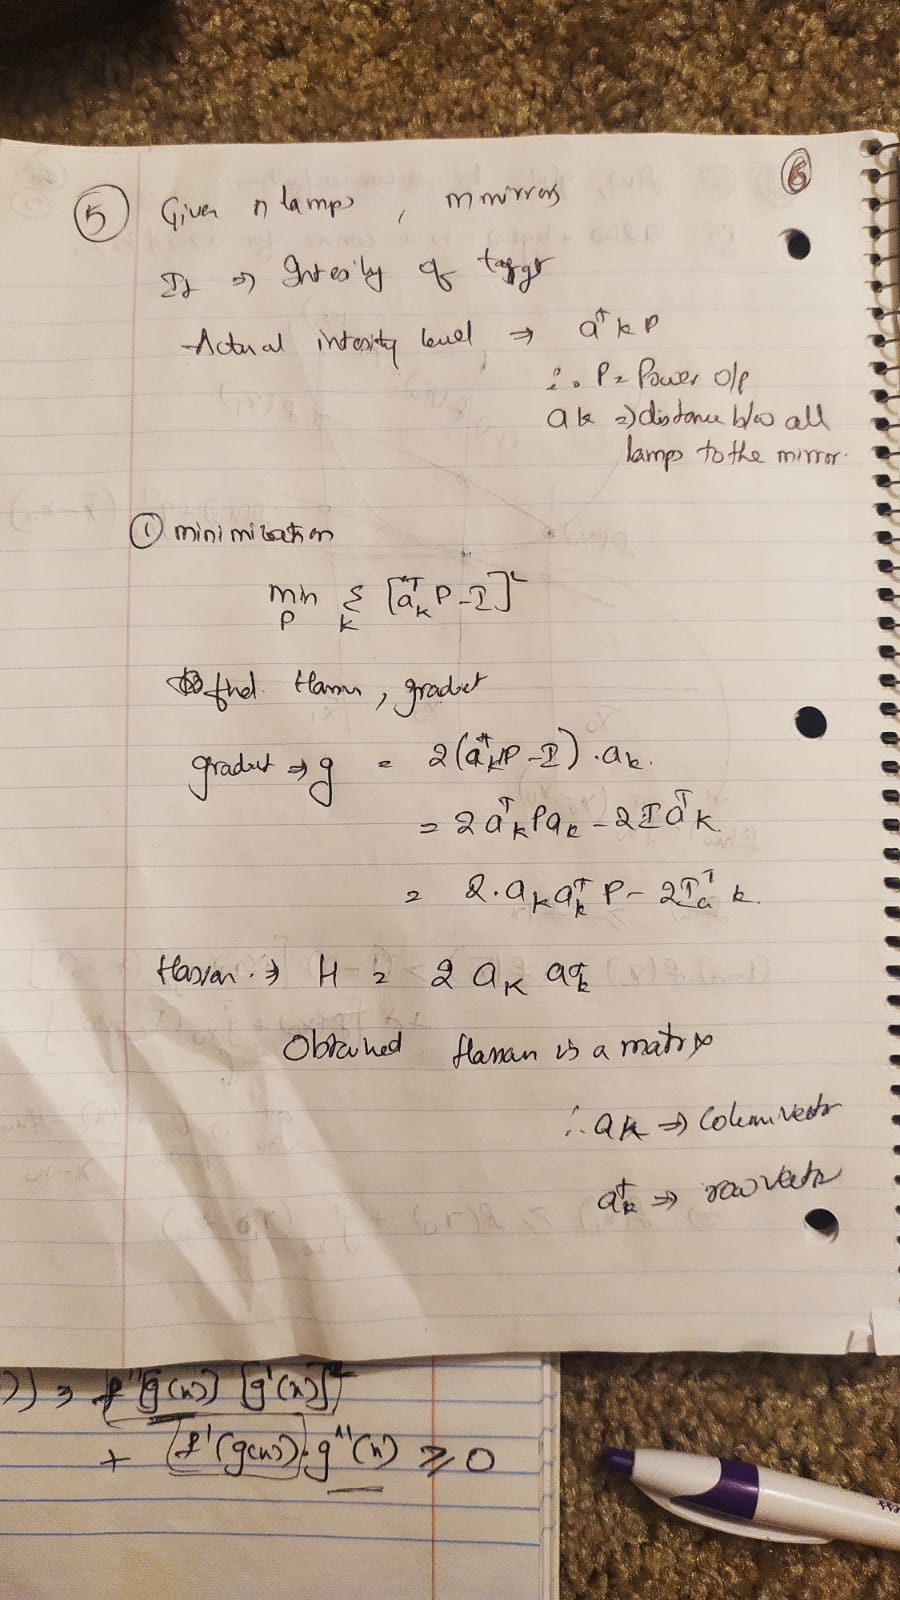 6
5 Given n lamps, m mirrors
I_t ⇒ Intesity of target
Actual intesity level ⇒ a^T k P
∴ P = Power o/p
ak ⇒ distance b/w all
lamps to the mirror.
① minimization
min_P Σ_k [a_k^T P - I]^2
find Hessian, gradiet
gradiet ⇒ g = 2(a_k^T P - I) . a_k.
= 2 a^T_k P a_k - 2 I a^T k
= 2 . a_k a_k^T P - 2 I a^T k.
Hessian. ⇒ H = 2 a_k a_k^T
Obtained Hessian is a matrix
∴ a_k ⇒ Column vector
a_k^T ⇒ row vector
)) ⇒ f''(g(x)) [g'(x)]^2
+ f'(g(x)) . g''(x) ≥ 0